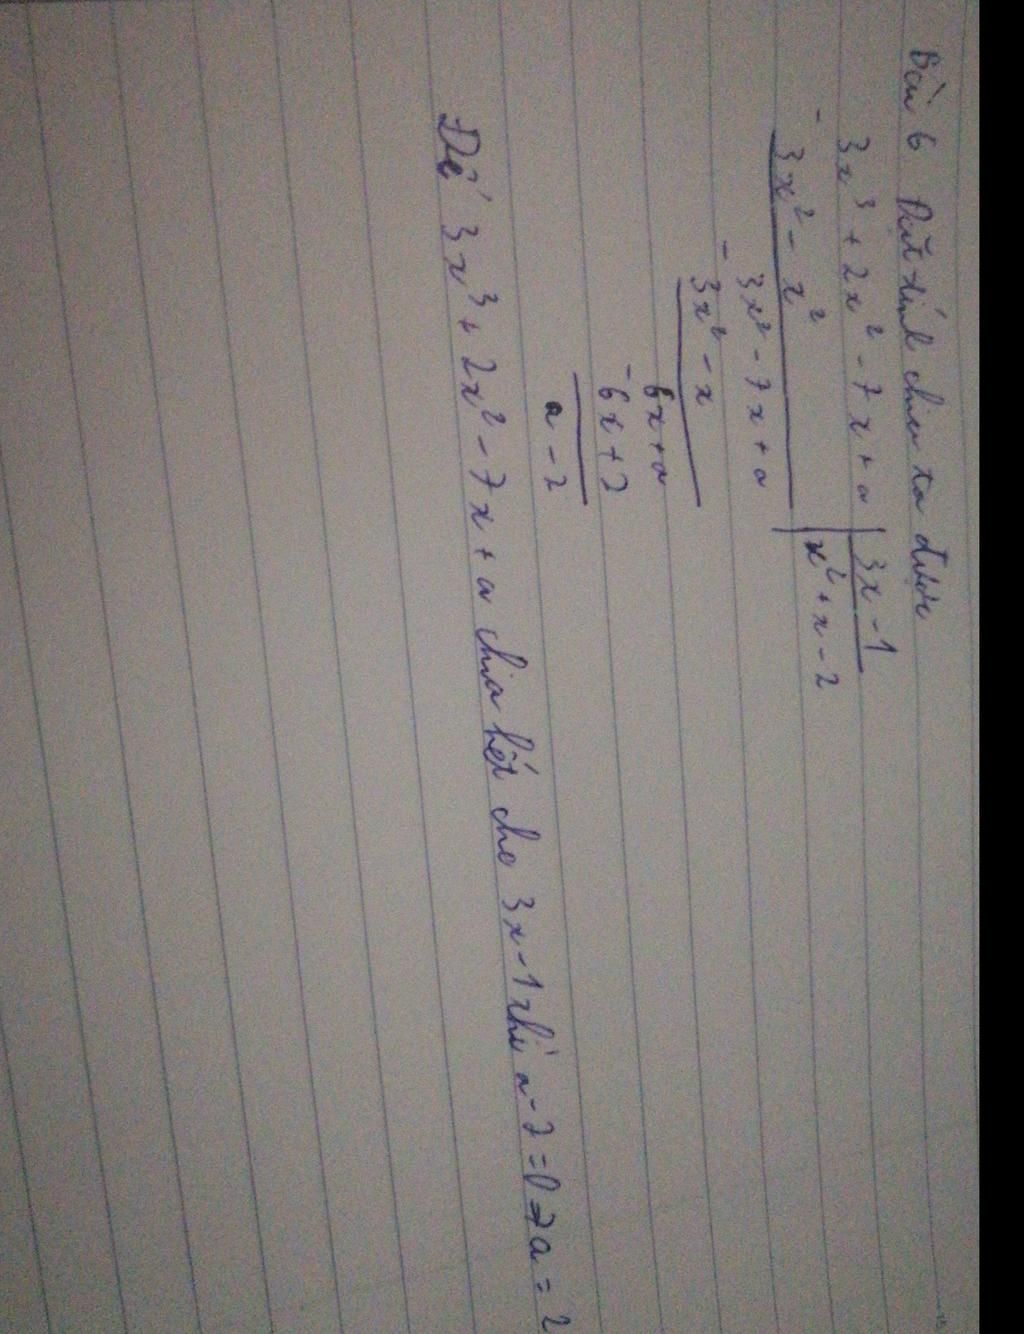 Bài 6 Đặt tính chia ta được
3x³ + 2x² - 7x + a | 3x - 1
- 3x² - x² | x² + x - 2
3x² - 7x + a
- 3x² - x
6x + a
- 6x + 2
a - 2
Để 3x³ + 2x² - 7x + a chia hết cho 3x - 1 thì a - 2 = 0 => a = 2